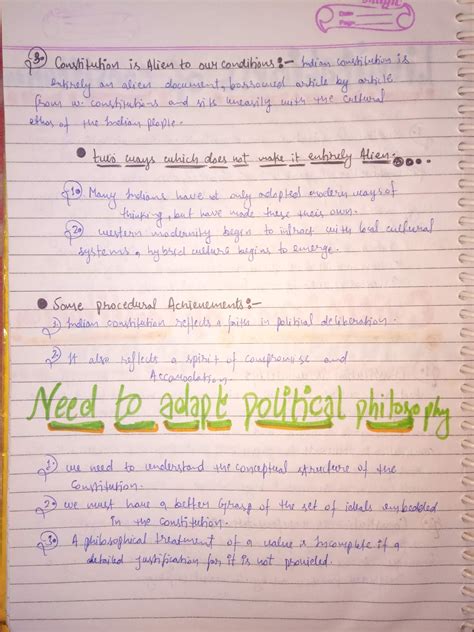 Date
Page
3. Constitution is Alien to our conditions :- Indian constitution is
entirely an alien document, borrowed article by article
from w. constitutions and sits uneasily with the cultural
ethos of the Indian people.
● two ways which does not make it entirely Alien.
1. Many Indians have not only adopted modern ways of
thinking, but have made these their own.
2. western modernity begin to intract with local cultural
systems, a hybrid culture begins to emerge.
● Some procedural Achievements :-
1. Indian constitution reflects a faith in political deliberation.
2. It also reflects a spirit of compromise and
Accomodation.
Need to adapt political philosophy
1. we need to understand the conceptual structure of the
Constitution.
2. we must have a better Grasp of the set of ideals embedded
in the constitution.
3. A philosophical treatment of a value is incomplete if a
detailed justification for it is not provided.